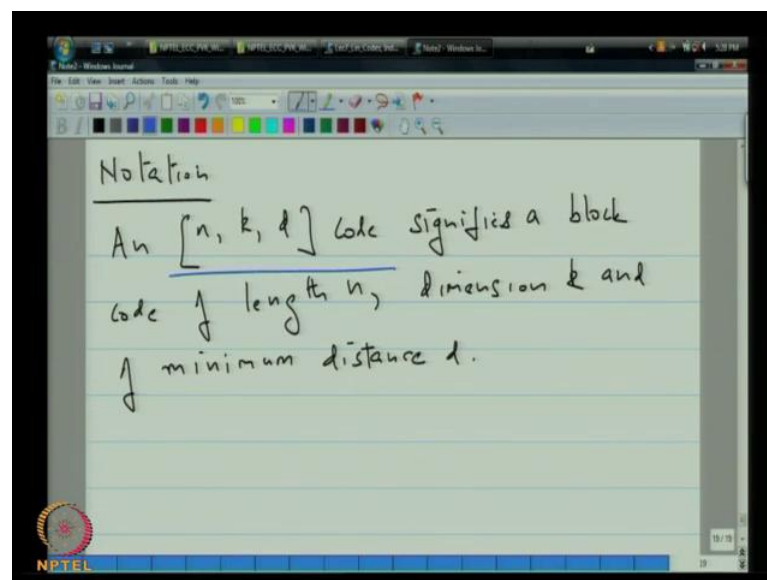 Note2 - Windows Journal
File Edit View Insert Actions Tools Help
Notation
An [n, k, d] code signifies a block
code of length n, dimension k and
of minimum distance d.
19/19
19
NPTEL